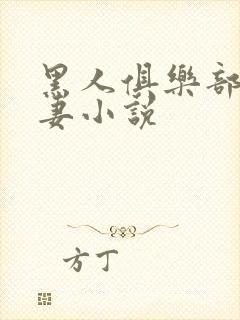 黑人俱樂部
妻小說
方丁